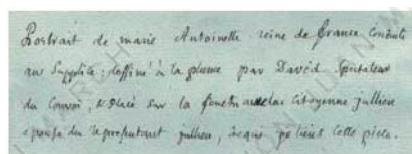 Portrait de marie Antoinette reine de france conduite
au Supplice; dessiné à la plume par David Spectateur
du Convoi, & placé sur la fenetre avec la citoyenne jullien
épouse du représentant jullien, de qui je tiens cette pièce.